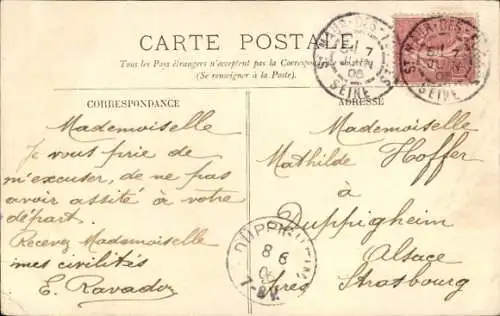 CARTE POSTALE
Tous les Pays étrangers n'acceptent pas la Correspondance
(Se renseigner à la Poste).
ST MAUR-DES-
7
06
SEINE
ST MAUR-DES-
SEINE
CORRESPONDANCE
Mademoiselle
Je vous prie de
m'excuser, de ne pas
avoir assité à votre
départ.
Recevez Mademoiselle
mes civilités
E. Ravadoz
ADRESSE
Mademoiselle
Mathilde Hoffer
à
Duppigheim
Alsace
près Strasbourg
DÜPPIGHEIM
8 6
06
7-8V.